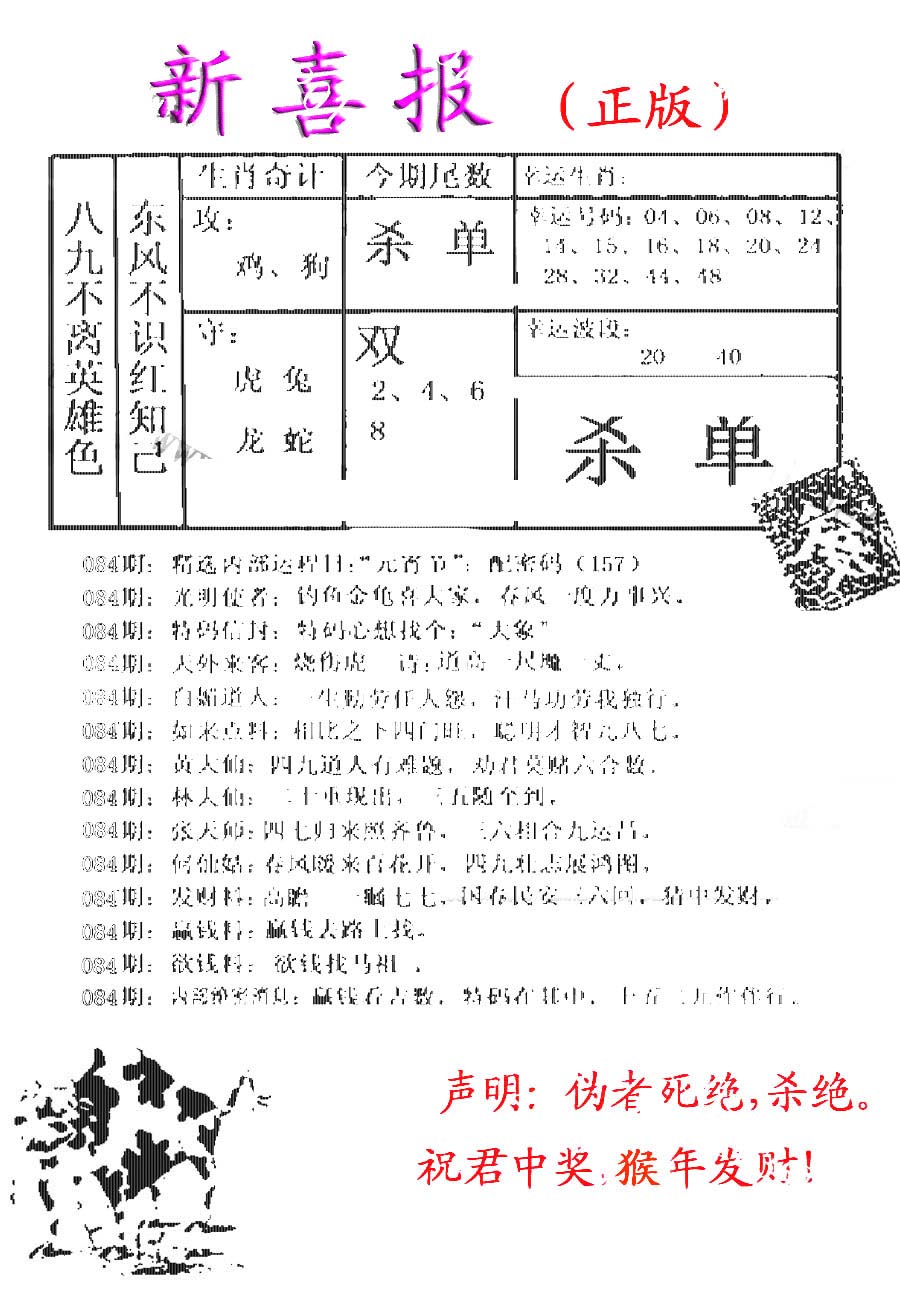 新喜报（正版）
八九不离英雄色
东风不识红知己
生肖奇计
攻：
鸡、狗
守：
虎 兔
龙 蛇
今期尾数
杀 单
双
2、4、6
8
幸运生肖：
幸运号码：04、06、08、12、
14、15、16、18、20、24
28、32、44、48
幸运波段：
20 40
杀 单
084期：精选内部运程日：“元宵节”：配密码（157）
084期：光明使者：钓鱼金龟喜大家，春风一度万事兴。
084期：特码信封：特码心想找个：“大象”
084期：天外来客：烧伤虎 请：道高一尺魔一丈，
084期：白媚道人：一生勤劳任人怨，汗马功劳我独行，
084期：如来点料：相比之下四门旺，聪明才智九八七。
084期：黄大仙：四九道人有难题，劝君莫赌六合数，
084期：林大仙：二十重现出，三五随个到，
084期：张天师：四七归来照齐鲁，三六相合九运昌。
084期：何仙姑：春风暖来百花开，四九壮志展鸿图，
084期：发财料：高瞻 一瞩七七，国泰民安三六回，猜中发财，
084期：赢钱料：赢钱去路上找。
084期：欲钱料：欲钱找马祖．
084期：内部绝密消息：赢钱看吉数，特码在其中，十五二九作伴行，
声明：伪者死绝,杀绝。
祝君中奖,猴年发财!